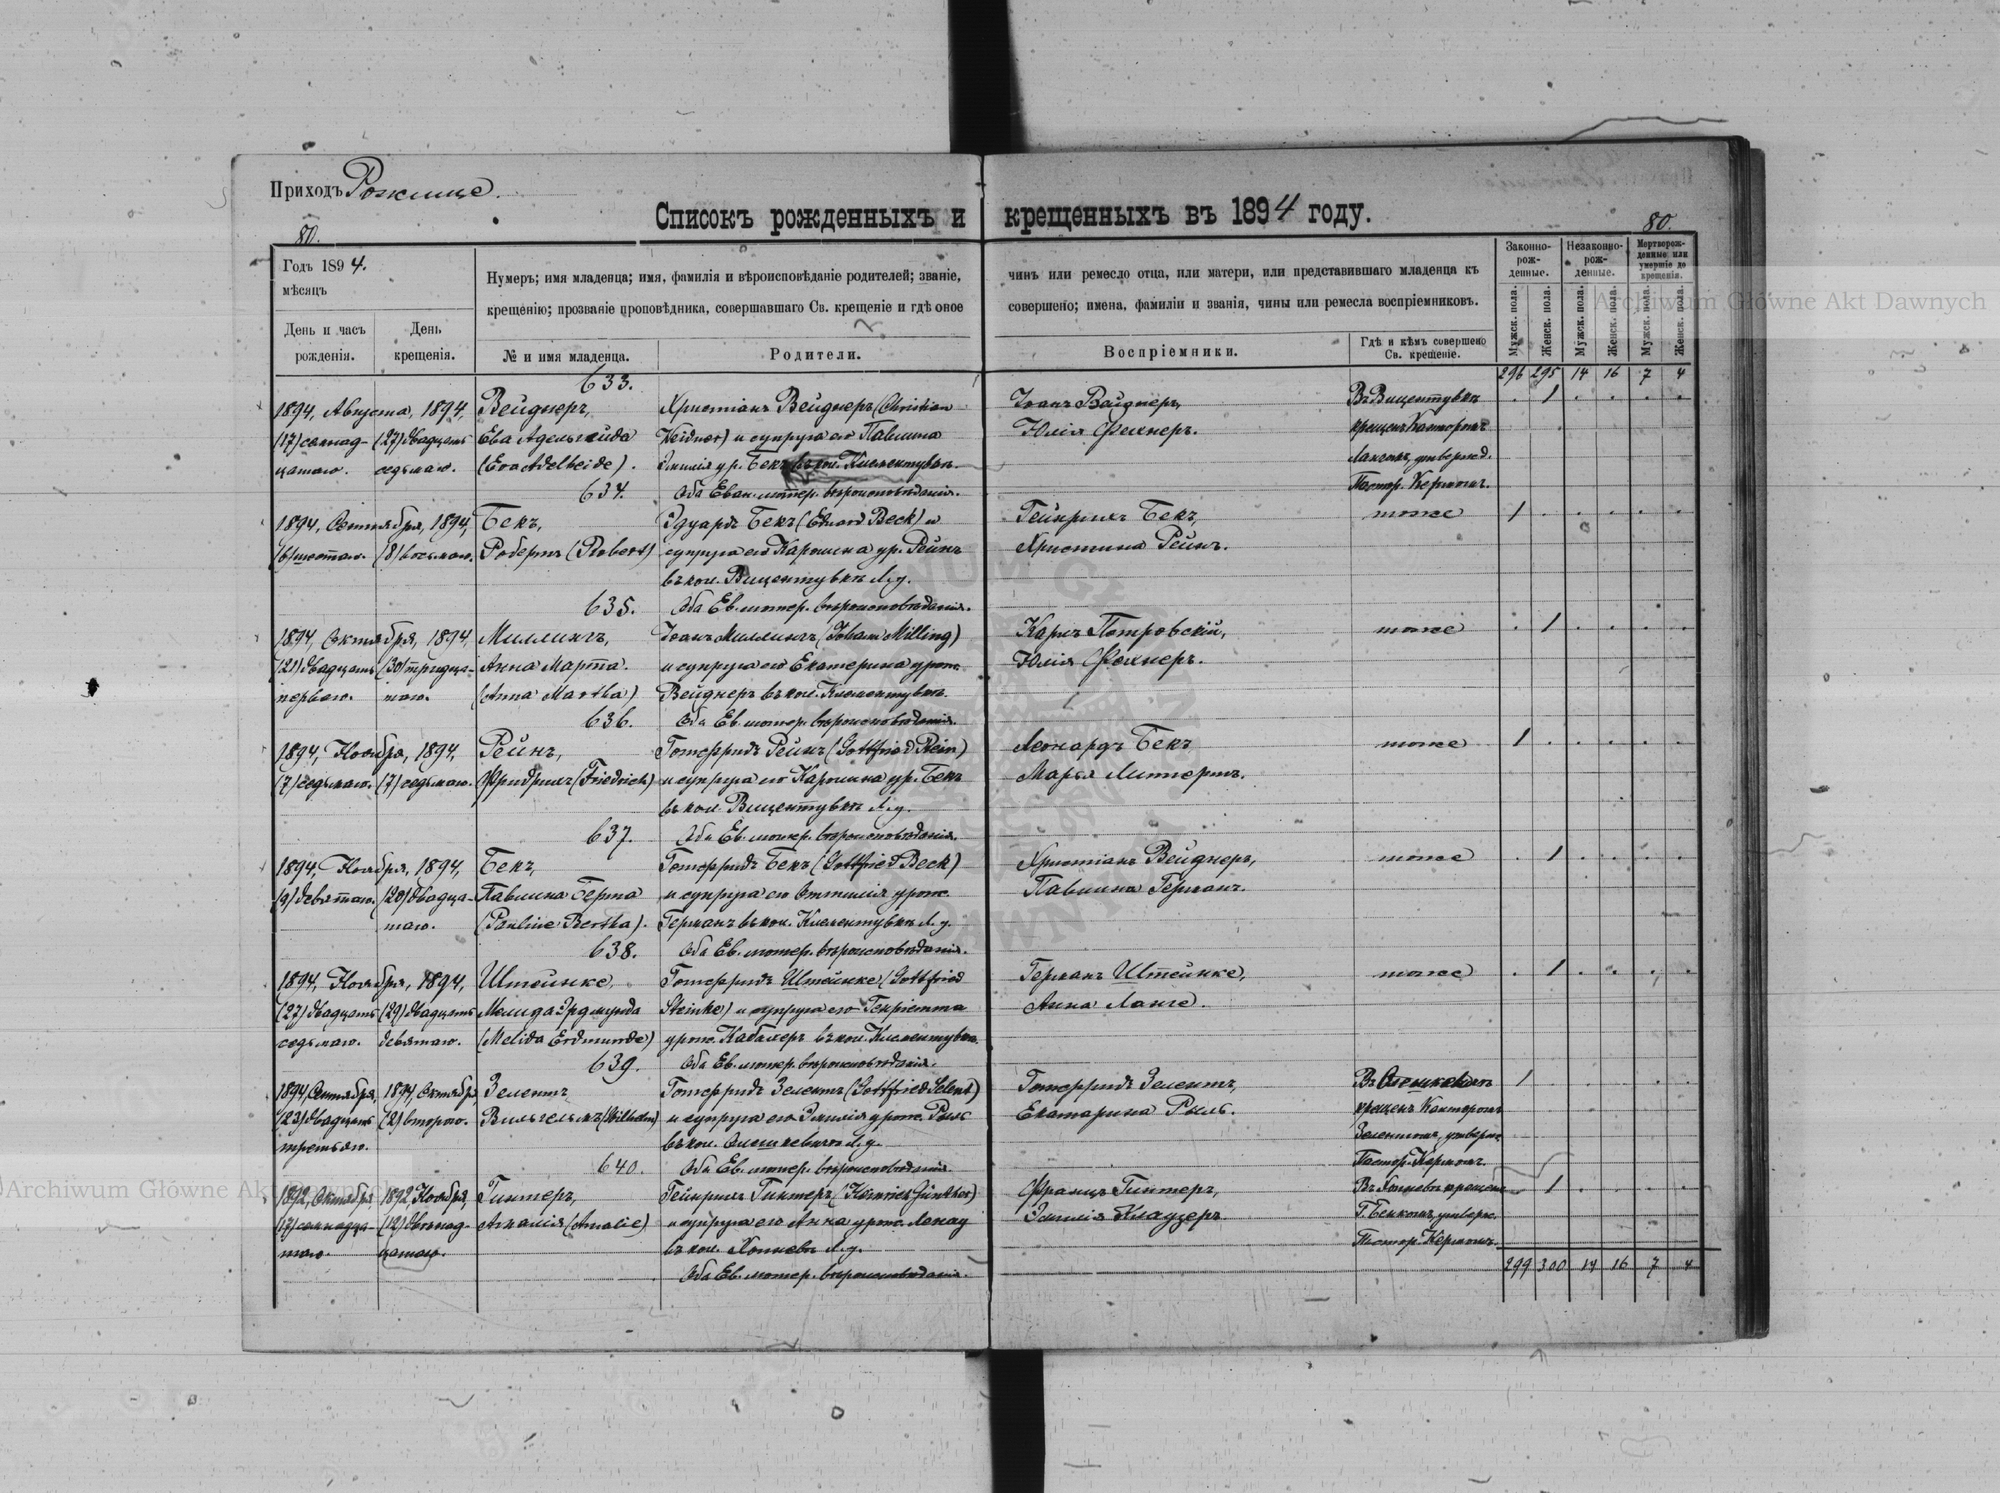 Приходъ Рожище.
Списокъ рожденныхъ и крещенныхъ въ 1894 году.
80.
80.
Годъ 1894.
мѣсяцъ
День и часъ рожденія.
День крещенія.
Нумеръ; имя младенца; имя, фамилія и вѣроисповѣданіе родителей; званіе, чинъ или ремесло отца, или матери, или представившаго младенца къ
крещенію; прозваніе проповѣдника, совершавшаго Св. крещеніе и гдѣ оное совершено; имена, фамиліи и званія, чины или ремесла воспріемниковъ.
№ и имя младенца.
Родители.
Воспріемники.
Гдѣ и кѣмъ совершено Св. крещеніе.
Законно-рож-денные.
Незаконно-рож-денные.
Мертворож-денные или умершіе до крещенія.
Мужск. пола.
Женск. пола.
Мужск. пола.
Женск. пола.
Мужск. пола.
Женск. пола.
296 295 14 16 7 4
633.
1894, Августа, 1894. Вейднеръ, Христіанъ Вейднеръ (Christian Іоанъ Вейднеръ, Въ Вицентувкѣ 1
(17) семнад- (27) двадцать Ева Адельгейда Weidner) и супруга его Павлина Юлія Фехнеръ. крещенъ Канторомъ
цатаго. седьмаго. (Eva Adelheide). Эмилія ур. Бекъ въ кол. Клементувкѣ. Лангомъ, утвержд.
634. Оба Еван. лютер. вѣроисповѣданія. Пастор. Кермомъ.
1894, Сентября, 1894, Бекъ, Эдуардъ Бекъ (Eduard Beck) и Гейнрихъ Бекъ, тоже 1
(6) шестаго. (8) восьмаго. Робертъ (Robert) супруга его Каролина ур. Рейнъ Христина Рейнъ.
въ кол. Вицентувкѣ Л. у.
635. Оба Ев. лютер. вѣроисповѣданія.
1894, Октября, 1894, Миллингъ, Іоанъ Миллингъ (Johann Milling) Карлъ Петровскій, тоже 1
(21) двадцать (30) тридца- Анна Марта. и супруга его Екатерина урож. Юлія Фехнеръ.
перваго. таго. (Anna Martha) Вейднеръ въ кол. Клементувкѣ.
636. Оба Ев. лютер. вѣроисповѣданія.
1894, Ноября, 1894, Рейнъ, Готфридъ Рейнъ (Gottfried Rein) Леонардъ Бекъ тоже 1
(7) седьмаго. (7) седьмаго. Фридрихъ (Friedrich) и супруга его Каролина ур. Бекъ Марья Литтертъ.
въ кол. Вицентувкѣ Л. у.
637. Оба Ев. лютер. вѣроисповѣданія.
1894, Ноября, 1894, Бекъ, Готфридъ Бекъ (Gottfried Beck) Христіанъ Вейднеръ, тоже 1
(9) девятаго. (20) двадца- Павлина Берта и супруга его Оттилія урож. Павлина Германъ.
таго. (Pauline Bertha). Германъ въ кол. Клементувкѣ Л. у.
638. Оба Ев. лютер. вѣроисповѣданія.
1894, Ноября, 1894, Штейнке, Готфридъ Штейнке (Gottfried Германъ Штейнке, тоже 1
(27) двадцать (29) двадцать Мелида Эрдмунда Steinke) и супруга его Генріетта Анна Ланге.
седьмаго. девятаго. (Melida Erdmunde) урож. Кабалеръ въ кол. Клементувкѣ.
639. Оба Ев. лютер. вѣроисповѣданія.
1894, Сентября, 1894, Октября Зелентъ Готфридъ Зелентъ (Gottfried Selent) Готфридъ Зелентъ, Въ Олешкевичахъ 1
(23) двадцать (2) втораго. Вильгельмъ (Wilhelm) и супруга его Эмилія урож. Рыль Екатарина Рыль. крещенъ Канторомъ
третьяго. въ кол. Олешкевичахъ Л. у. Зелентомъ, утвержд.
640. Оба Ев. лютер. вѣроисповѣданія. Пастор. Кермомъ.
1892, Октября, 1892, Ноября, Гинтеръ, Гейнрихъ Гинтеръ (Heinrich Günther) Францъ Гинтеръ, Въ Копчевѣ крещена 1
(17) семнадца- (12) двѣнад- Амалія (Amalie) и супруга его Анна урож. Эмилія Клаузеръ. Г. Бенкомъ, утвержд.
таго. цатаго. въ кол. Л. у. Пастор. Кермомъ.
Оба Ев. лютер. вѣроисповѣданія. 299 300 14 16 7 4
Archiwum Główne Akt Dawnych
Archiwum Główne Akt Dawnych